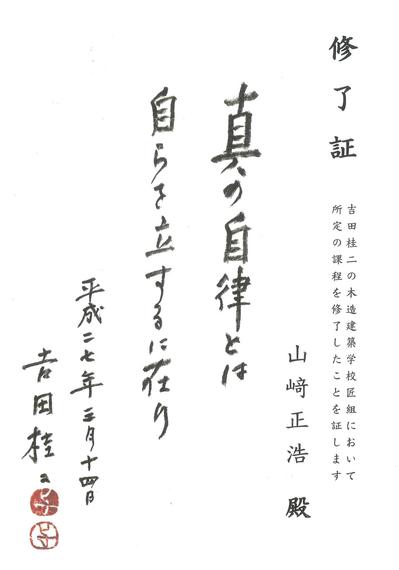 修了証
吉田桂二の木造建築学校匠組において
所定の課程を修了したことを証します
山﨑正浩 殿
真の自律とは
自らを立するに在り
平成二七年三月十四日
吉田桂二